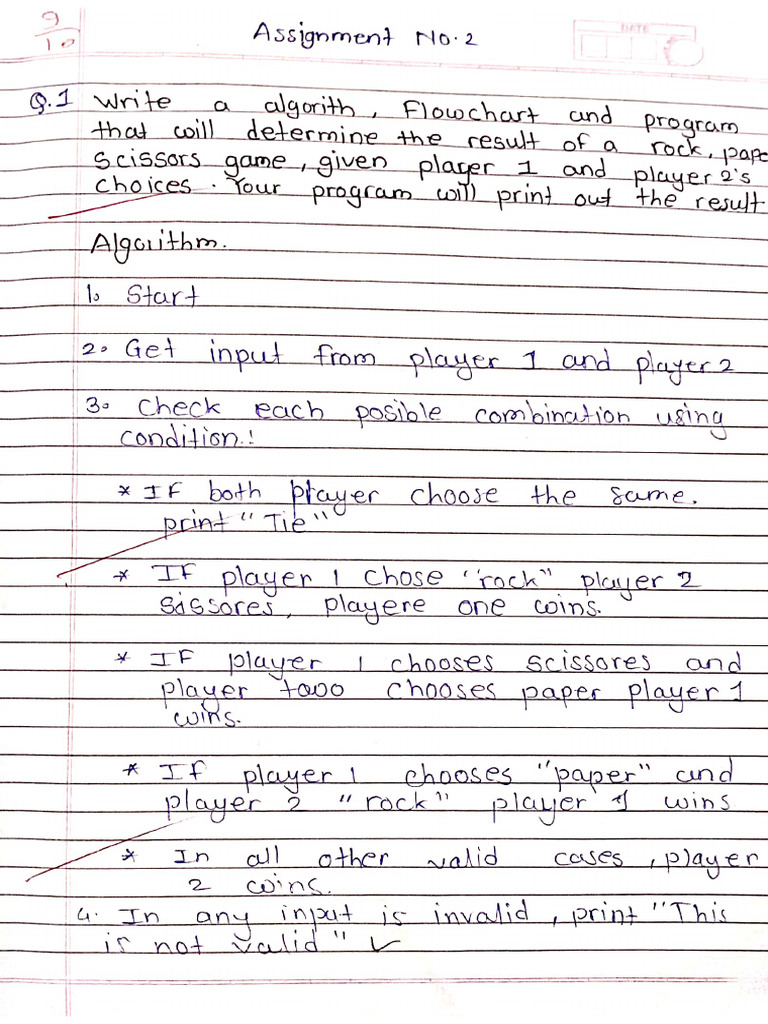 9/10
Assignment No. 2
DATE
Q.1 Write a algorith, Flowchart and program
that will determine the result of a rock, pape
scissors game, given player 1 and player 2's
choices. Your program will print out the result
Algorithm.
1. Start
2. Get input from player 1 and player 2
3. Check each posible combination using
condition.!
* IF both player choose the same.
print "Tie"
* IF player 1 chose "rock" player 2
sissores, playere one wins.
* IF player 1 chooses scissores and
player twoo chooses paper player 1
wins.
* If player 1 chooses "paper" and
player 2 "rock" player 1 wins
* In all other valid cases, player
2 wins.
4. In any input is invalid, print "This
is not valid"